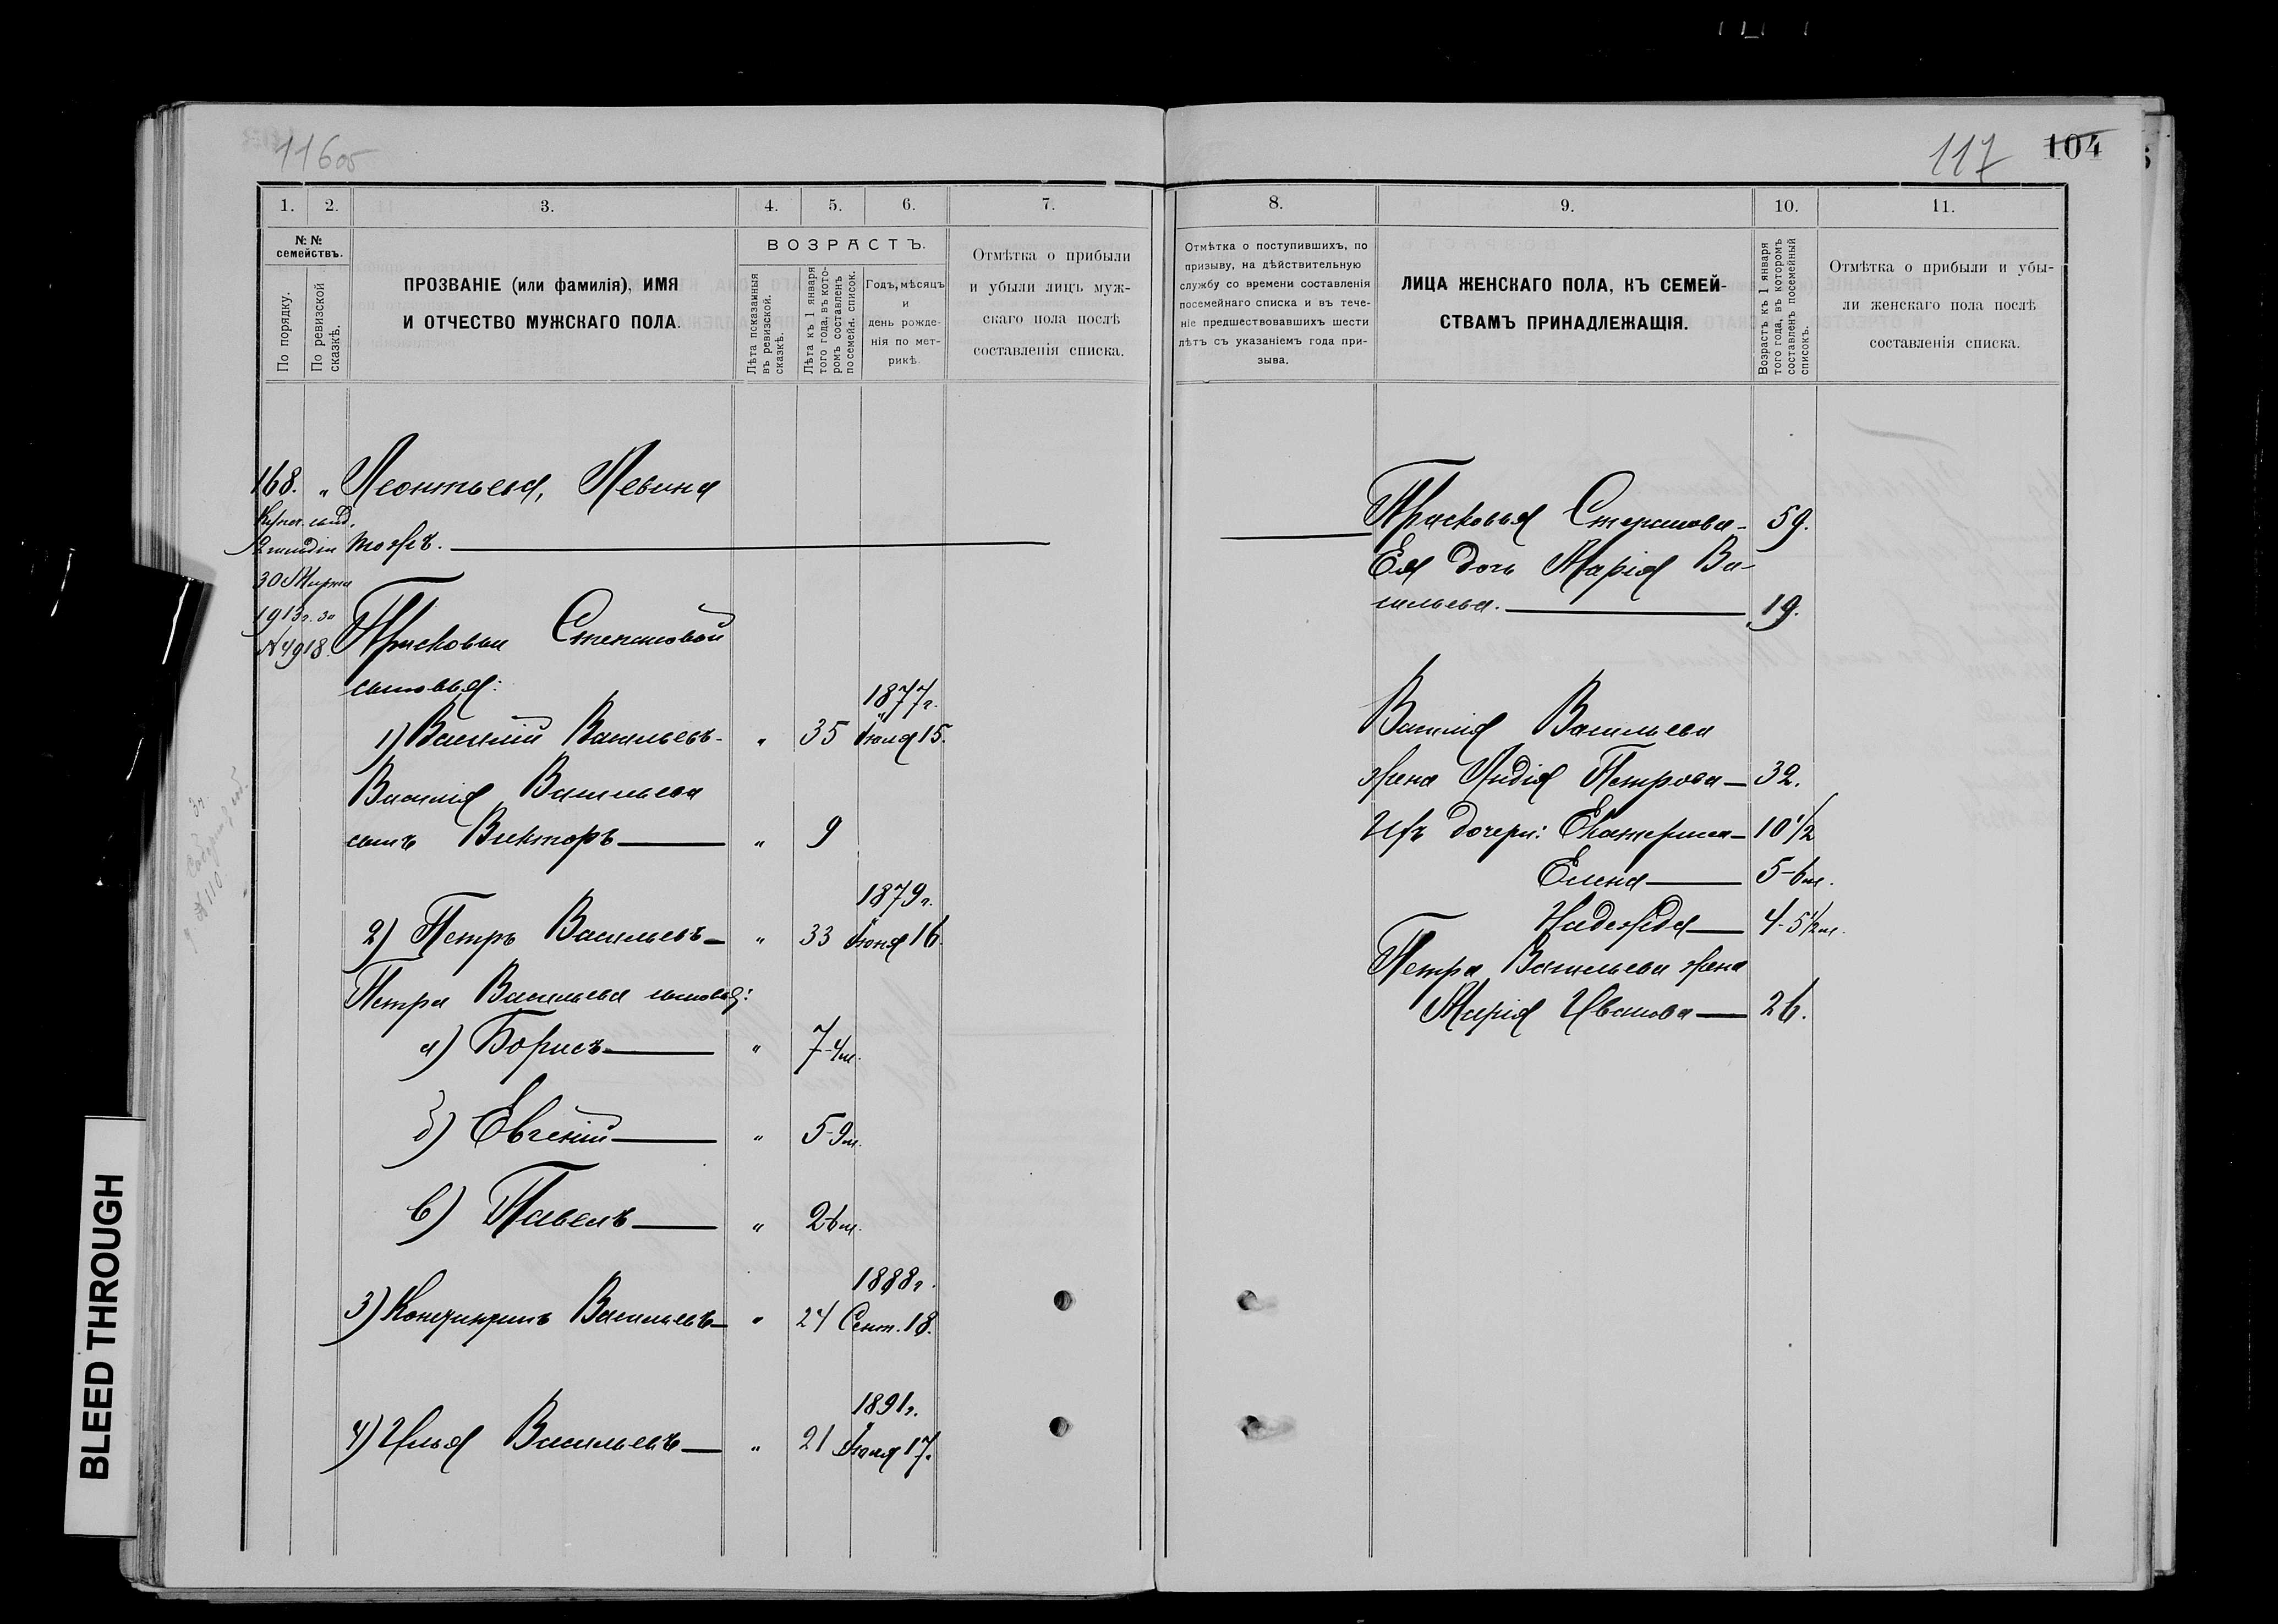 116об
117
104
1.
2.
3.
4.
5.
6.
7.
№ №
семействъ.
По порядку.
По ревизской
сказкѣ.
ПРОЗВАНІЕ (или фамилія), ИМЯ
И ОТЧЕСТВО МУЖСКАГО ПОЛА.
ВОЗРАСТЪ.
Лѣта показанныя
въ ревизской.
сказкѣ.
Лѣта къ 1 января
того года, въ кото-
ромъ составленъ
посемейн. список.
Годъ, мѣсяцъ
и
день рожде-
нія по мет-
рикѣ.
Отмѣтка о прибыли
и убыли лицъ муж-
скаго пола послѣ
составленія списка.
168. „ Леонтьева, Левина
тожъ.
30 Марта
1913г. за
№4918.
Прасковьи Степановой
сыновья:
1877г.
1) Василій Васильевъ- „ 35 Іюля 15.
Василія Васильева
сынъ Викторъ „ 9
1879г.
2) Петръ Васильевъ „ 33 Іюня 16.
Петра Васильева сыновья:
а) Борисъ „ 7-4м.
б) Евгеній „ 5-9м.
в) Павелъ „ 2-6м.
1888г.
3) Константинъ Васильевъ „ 24 Сент. 18.
1891г.
4) Илья Васильевъ „ 21 Іюля 17.
8.
9.
10.
11.
Отмѣтка о поступившихъ, по
призыву, на дѣйствительную
службу со времени составленія
посемейнаго списка и въ тече-
ніе предшествовавшихъ шести
лѣтъ съ указаніемъ года при-
зыва.
ЛИЦА ЖЕНСКАГО ПОЛА, КЪ СЕМЕЙ-
СТВАМЪ ПРИНАДЛЕЖАЩІЯ.
Возрастъ къ 1 января
того года, въ которомъ
составленъ посемейный
списокъ.
Отмѣтка о прибыли и убы-
ли женскаго пола послѣ
составленія списка.
Прасковья Степанова- 59.
Ея дочь Марія Ва-
сильева. 19.
Василія Васильева
жена Лидія Петрова 32.
Ихъ дочери: Екатерина 10½
Елена 5-6м.
Надежда 4-5½м.
Петра Васильева жена
Марія Иванова 26.
BLEED THROUGH